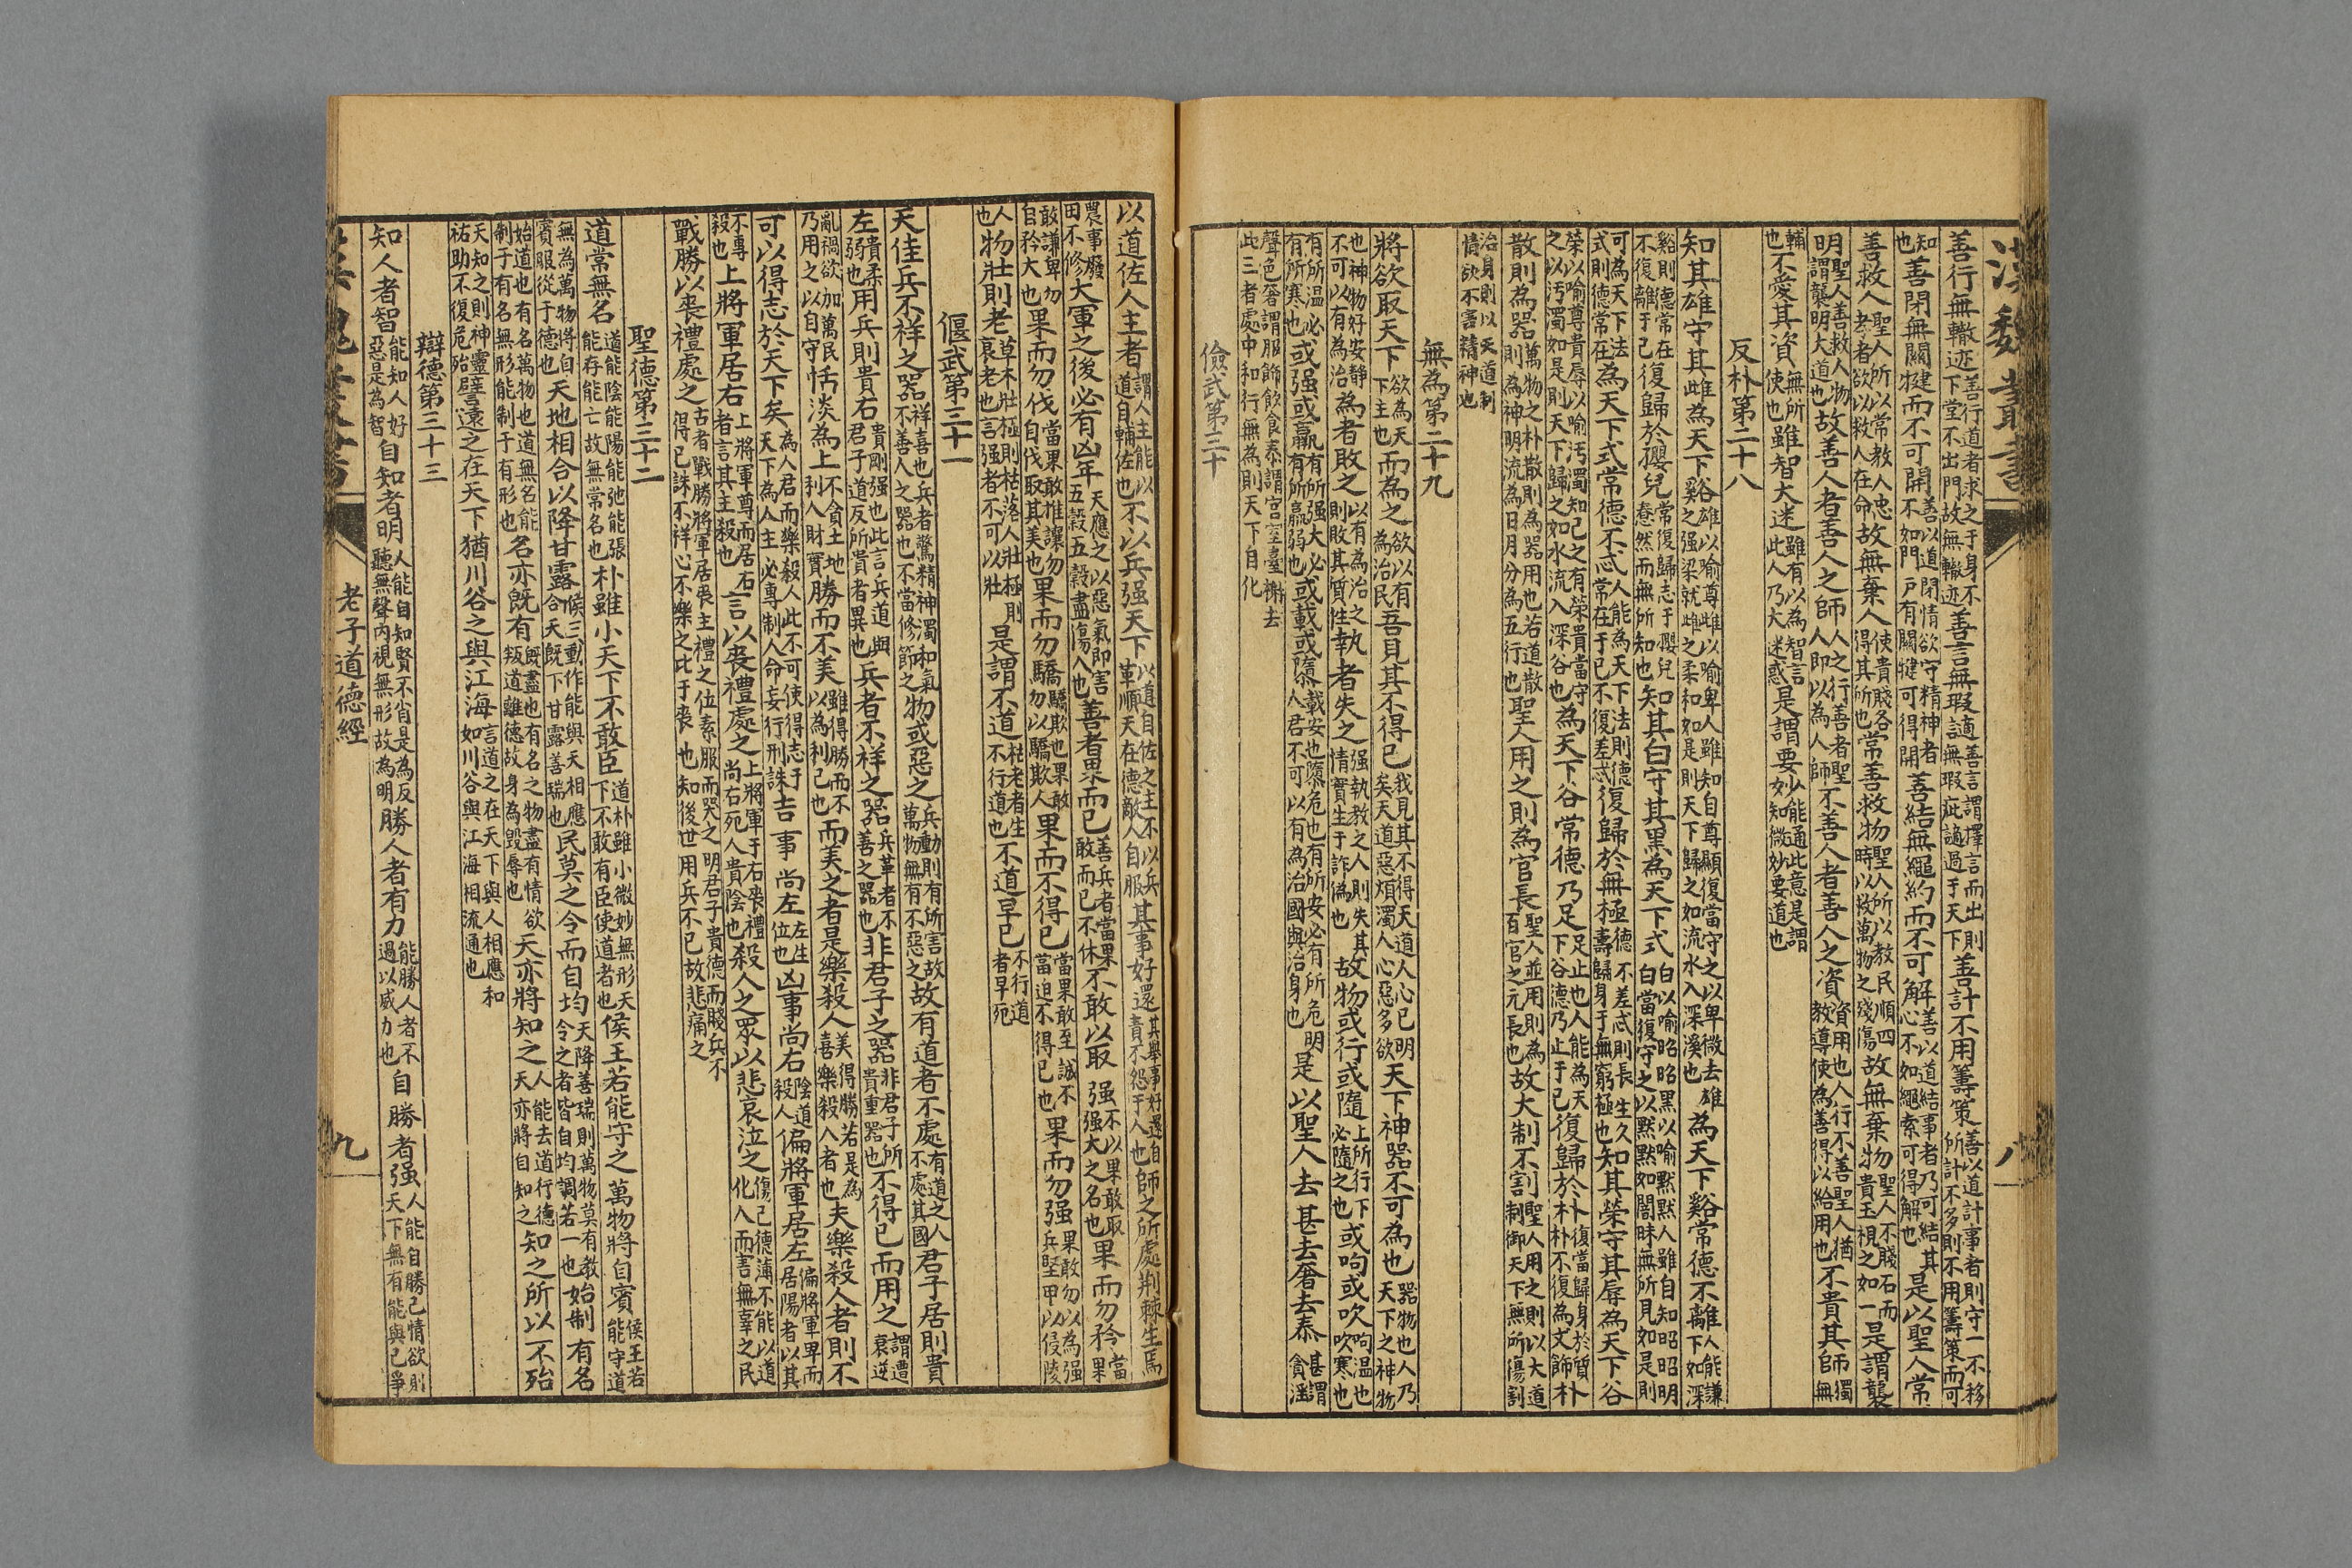 漢魏叢書
八
善行無轍迹善行道者求之于身不下堂不出門故無轍迹善言無瑕讁善言謂擇言而出則無瑕疵讁過于天下善計不用籌策善以道計事者則守一不移所計不多則不用籌策而可
知也善閉無關揵而不可開善以道閉情欲守精神者不如門戶有關揵可得開善結無繩約而不可解善以道結事者乃可結其心不如繩索可得解也是以聖人常
善救人聖人所以常教人忠孝者欲以救人性命故無棄人使貴賤各得其所也常善救物聖人所以教民順四時以救萬物之殘傷故無棄物聖人不賤石而貴玉視之如一是謂襲
明聖人善救人物謂襲明大道也故善人者善人之師人之行善者聖人即以為人師不善人者善人之資資用也人行不善聖人猶教導使為善得以給用也不貴其師獨無
輔也不愛其資無所使也雖智大迷雖有以為智言此人乃大迷惑是謂要妙能通此意是謂知微妙要道也
反朴第二十八
知其雄守其雌為天下谿雄以喻尊雌以喻卑人雖知自尊顯復當守之以卑微去雄之强梁就雌之柔和如是則天下歸之如流水入深溪也為天下谿常德不離人能謙下如深
谿則德常在不復離于己復歸於孾兒常復歸志于孾兒惷然而無所知也知其白守其黑為天下式白以喻昭昭黑以喻默默人雖自知昭昭明白當復守之以默默如闇昧無所見如是則
可為天下法式則德常在為天下式常德不忒人能為天下法則德常在于己不復差忒復歸於無極德不差忒則長生久壽歸身于無窮極也知其榮守其辱為天下谷
榮以喻尊貴辱以喻汚濁知己之有榮貴當守之以汚濁如是則天下歸之如水流入深谷也為天下谷常德乃足足止也人能為天下谷德乃止于己復歸於朴復當歸身於質朴不復為文飾朴
散則為器萬物之朴散則為器用也若道散則為神明流為日月分為五行也聖人用之則為官長聖人並用則為百官之元長也故大制不割聖人用之則以大道制御天下無所傷割
治身則以天道制情欲不害精神也
無為第二十九
將欲取天下欲為天下主也而為之欲以有為治民吾見其不得已我見其不得天道人心已明矣天道惡煩濁人心惡多欲天下神器不可為也器物也人乃天下之神物
也神物好安靜不可以有為治為者敗之以有為治之則敗其質性執者失之强執教之人則失其情實生于詐偽也故物或行或隨上所行下必隨之也或呴或吹呴温也吹寒也
有所温必有所寒也或强或羸有所强大必有所羸弱也或載或隳載安也隳危也有所安必有所危明人君不可以有為治國與治身也是以聖人去甚去奢去泰甚謂貪淫
聲色奢謂服飾飲食泰謂宮室臺榭去此三者處中和行無為則天下自化
儉武第三十
以道佐人主者謂人主能以道自輔佐也不以兵强天下以道自佐之主不以兵革順天任德敵人自服其事好還其舉事好還自責不怨于人也師之所處荆棘生焉
農事廢田不修大軍之後必有凶年天應之以惡氣即害五穀五穀盡傷人也善者果而已善兵者當果敢而已不休不敢以取强不以果敢取强大之名也果而勿矜當果
敢謙卑勿自矜大也果而勿伐當果敢推讓勿自伐取其美也果而勿驕驕欺也果敢勿以驕欺人果而不得已當果敢至誠不當迫不得已也果而勿强果敢勿以為强兵堅甲以侵陵
人也物壯則老草木壯極則枯落人壯極則衰老也言强者不可以壯是謂不道枯老者生不行道也不道早已不行道者早死
偃武第三十一
夫佳兵不祥之器祥喜也兵者驚精神濁和氣不善人之器也不當修飾之物或惡之兵動則有所害故萬物無有不惡之故有道者不處有道之人不處其國君子居則貴
左貴柔弱也用兵則貴右貴剛强也此言兵道與君子道反所貴者異也兵者不祥之器兵革者不善之器也非君子之器非君子所貴重器也不得已而用之謂遭衰逆
亂禍欲加萬民乃用之以自守恬淡為上不貪土地利人財寶勝而不美雖得勝而不以為利己也而美之者是樂殺人美得勝若是為喜樂殺人者也夫樂殺人者則不
可以得志於天下矣為人君而樂殺人此不可使得志于天下為人主必專制人命妄行刑誅吉事尚左左生位也凶事尚右陰道殺人偏將軍居左偏將軍卑而居陽者以其
不專殺也上將軍居右上將軍尊而居右者言其主殺也言以喪禮處之上將軍于右喪禮尚右死人貴陰也殺人之眾以悲哀泣之傷己德薄不能以道化人而害無辜之民
戰勝以喪禮處之古者戰勝將軍居喪主禮之位素服而哭之明君子貴德而賤兵不得已誅不祥心不樂之比于喪也知後世用兵不已故悲痛之
聖德第三十二
道常無名道能陰能陽能弛能張能存能亡故無常名也朴雖小天下不敢臣道朴雖小微妙無形天下不敢有臣使道者也侯王若能守之萬物將自賓侯王若能守道
無為萬物將自賓服從于德也天地相合以降甘露侯王動作能與天相應合天既下甘露善瑞也民莫之令而自均天降善瑞則萬物莫有教令之者皆自均調若一也始制有名
始道也有名萬物也道無名能制于有名無形能制于有形也名亦既有既盡也有名之物盡有情欲叛道離德故身為毀辱也天亦將知之人能去道行德天亦將自知之知之所以不殆
天知之則神靈祐助不復危殆譬道之在天下猶川谷之與江海言道之在天下與人相應和如川谷與江海相流通也
辯德第三十三
知人者智能知人好惡是為智自知者明人能自知賢不肖是為反聽無聲内視無形故為明勝人者有力能勝人者不過以威力也自勝者强人能自勝己情欲則天下無有能與己爭
老子道德經
九